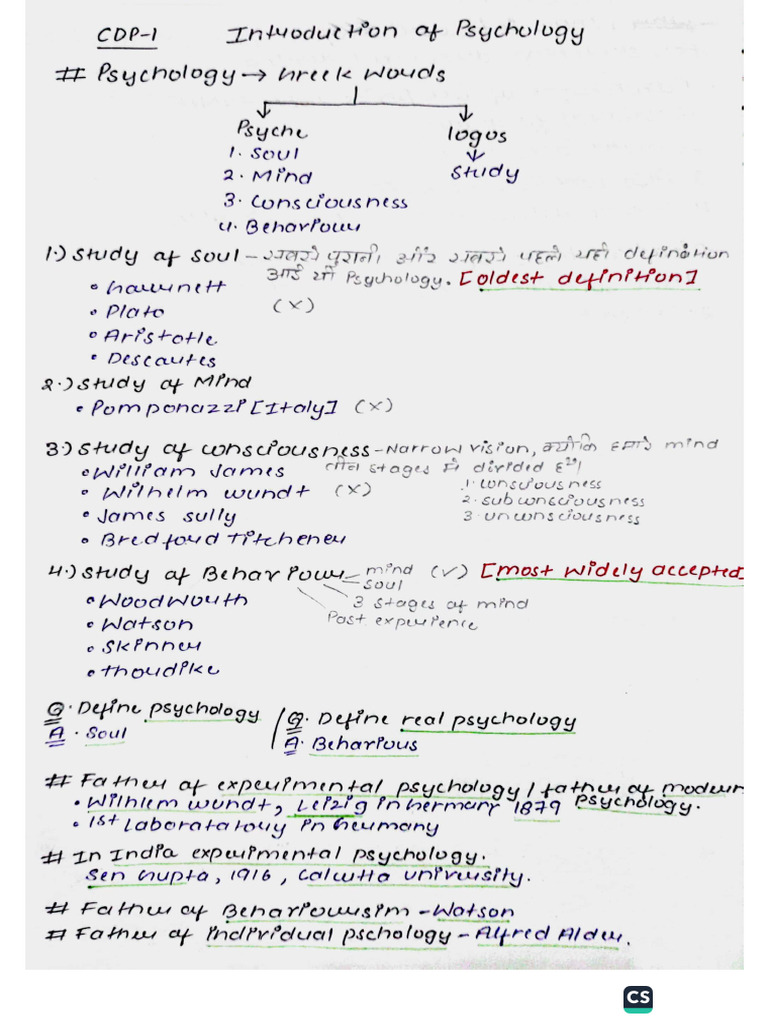 CDP-1 Introduction of Psychology
# Psychology → Greek Words
Psyche logos
1. Soul Study
2. Mind
3. Consciousness
4. Behaviour
1.) Study of Soul - सबसे पुरानी और सबसे पहले यही definition
आई थी Psychology. [oldest definition]
• Garrett (X)
• Plato
• Aristotle
• Descartes
2.) Study of Mind
• Pomponazzi [Italy] (X)
3.) Study of Consciousness - Narrow vision, क्योंकि हमारे mind
• William James तीन stages में divided है।
• Wilhelm Wundt (X) 1. Consciousness
• James Sully 2. subconsciousness
• Bredford Titchener 3. unconsciousness
4.) Study of Behaviour mind (✓) [most widely accepted]
soul
• Woodworth 3 stages of mind
• Watson Past experience
• Skinner
• Thordike
Q. Define psychology / Q. Define real psychology
A. Soul A. Behavious
# Father of experimental psychology / father of modern
• Wilhlem Wundt, Leipzig in Germany 1879 Psychology.
• 1st Laboratatory in Germany
# In India experimental psychology.
Sen Gupta, 1916, Calcutta university.
# Father of Behaviourism - Watson
# Father of individual pschology - Alfred Alder.
CS